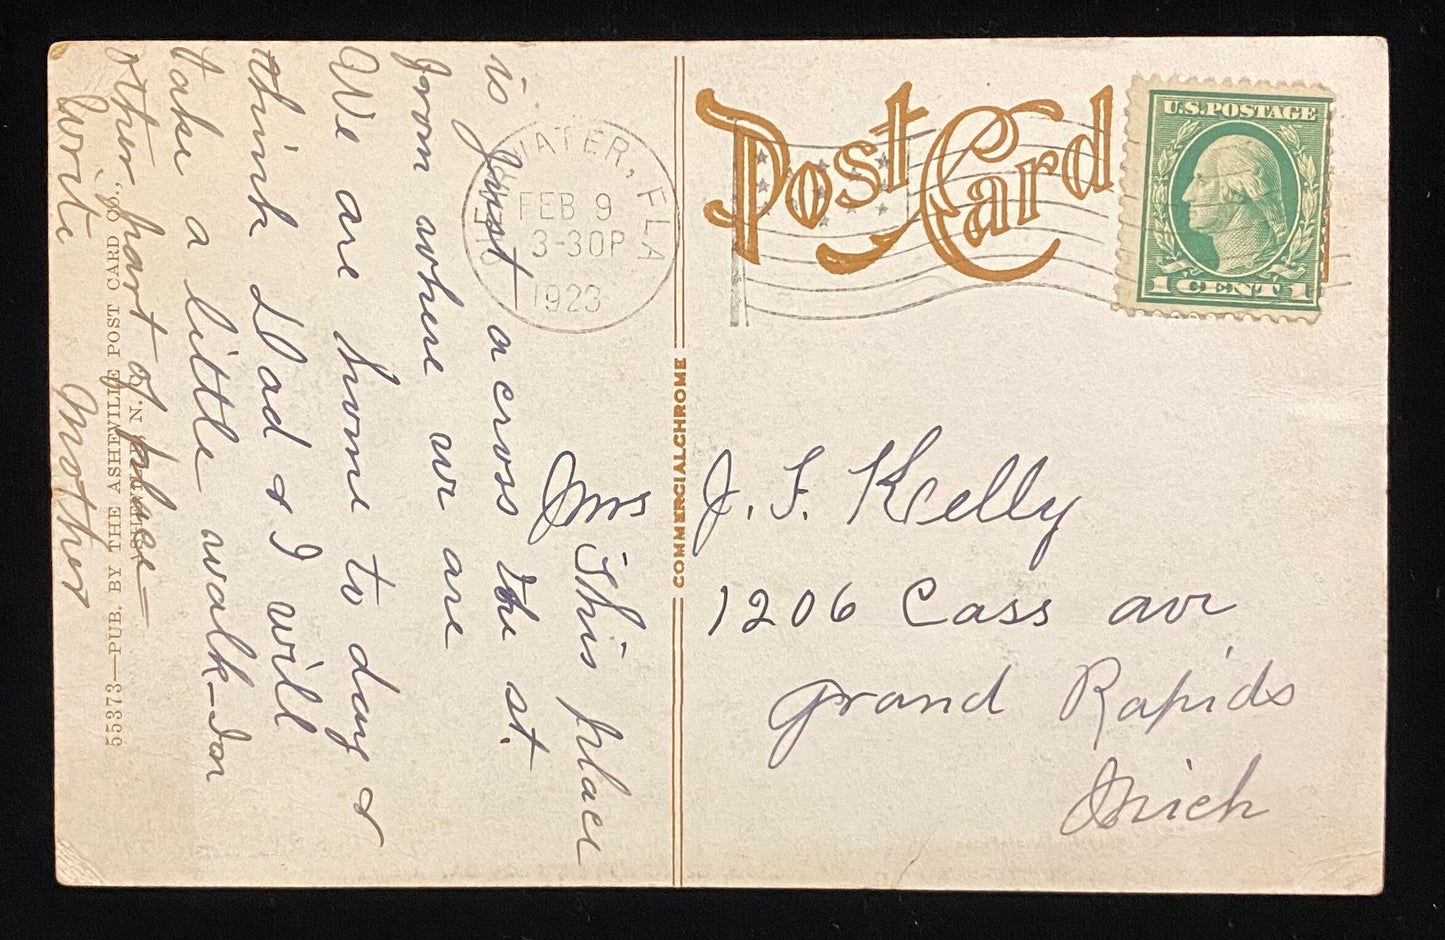 Post Card
U.S. POSTAGE
1 CENT 1
WATER, FLA
FEB 9
3-30P
1923
COMMERCIALCHROME
Mrs J. F. Kelly
1206 Cass ave
Grand Rapids
Mich
This place
is just a cross the st.
from where we are
We are home to day &
think Dad & I will
take a little walk - in
other part of place -
Write Mother
55373—PUB. BY THE ASHEVILLE POST CARD CO.,